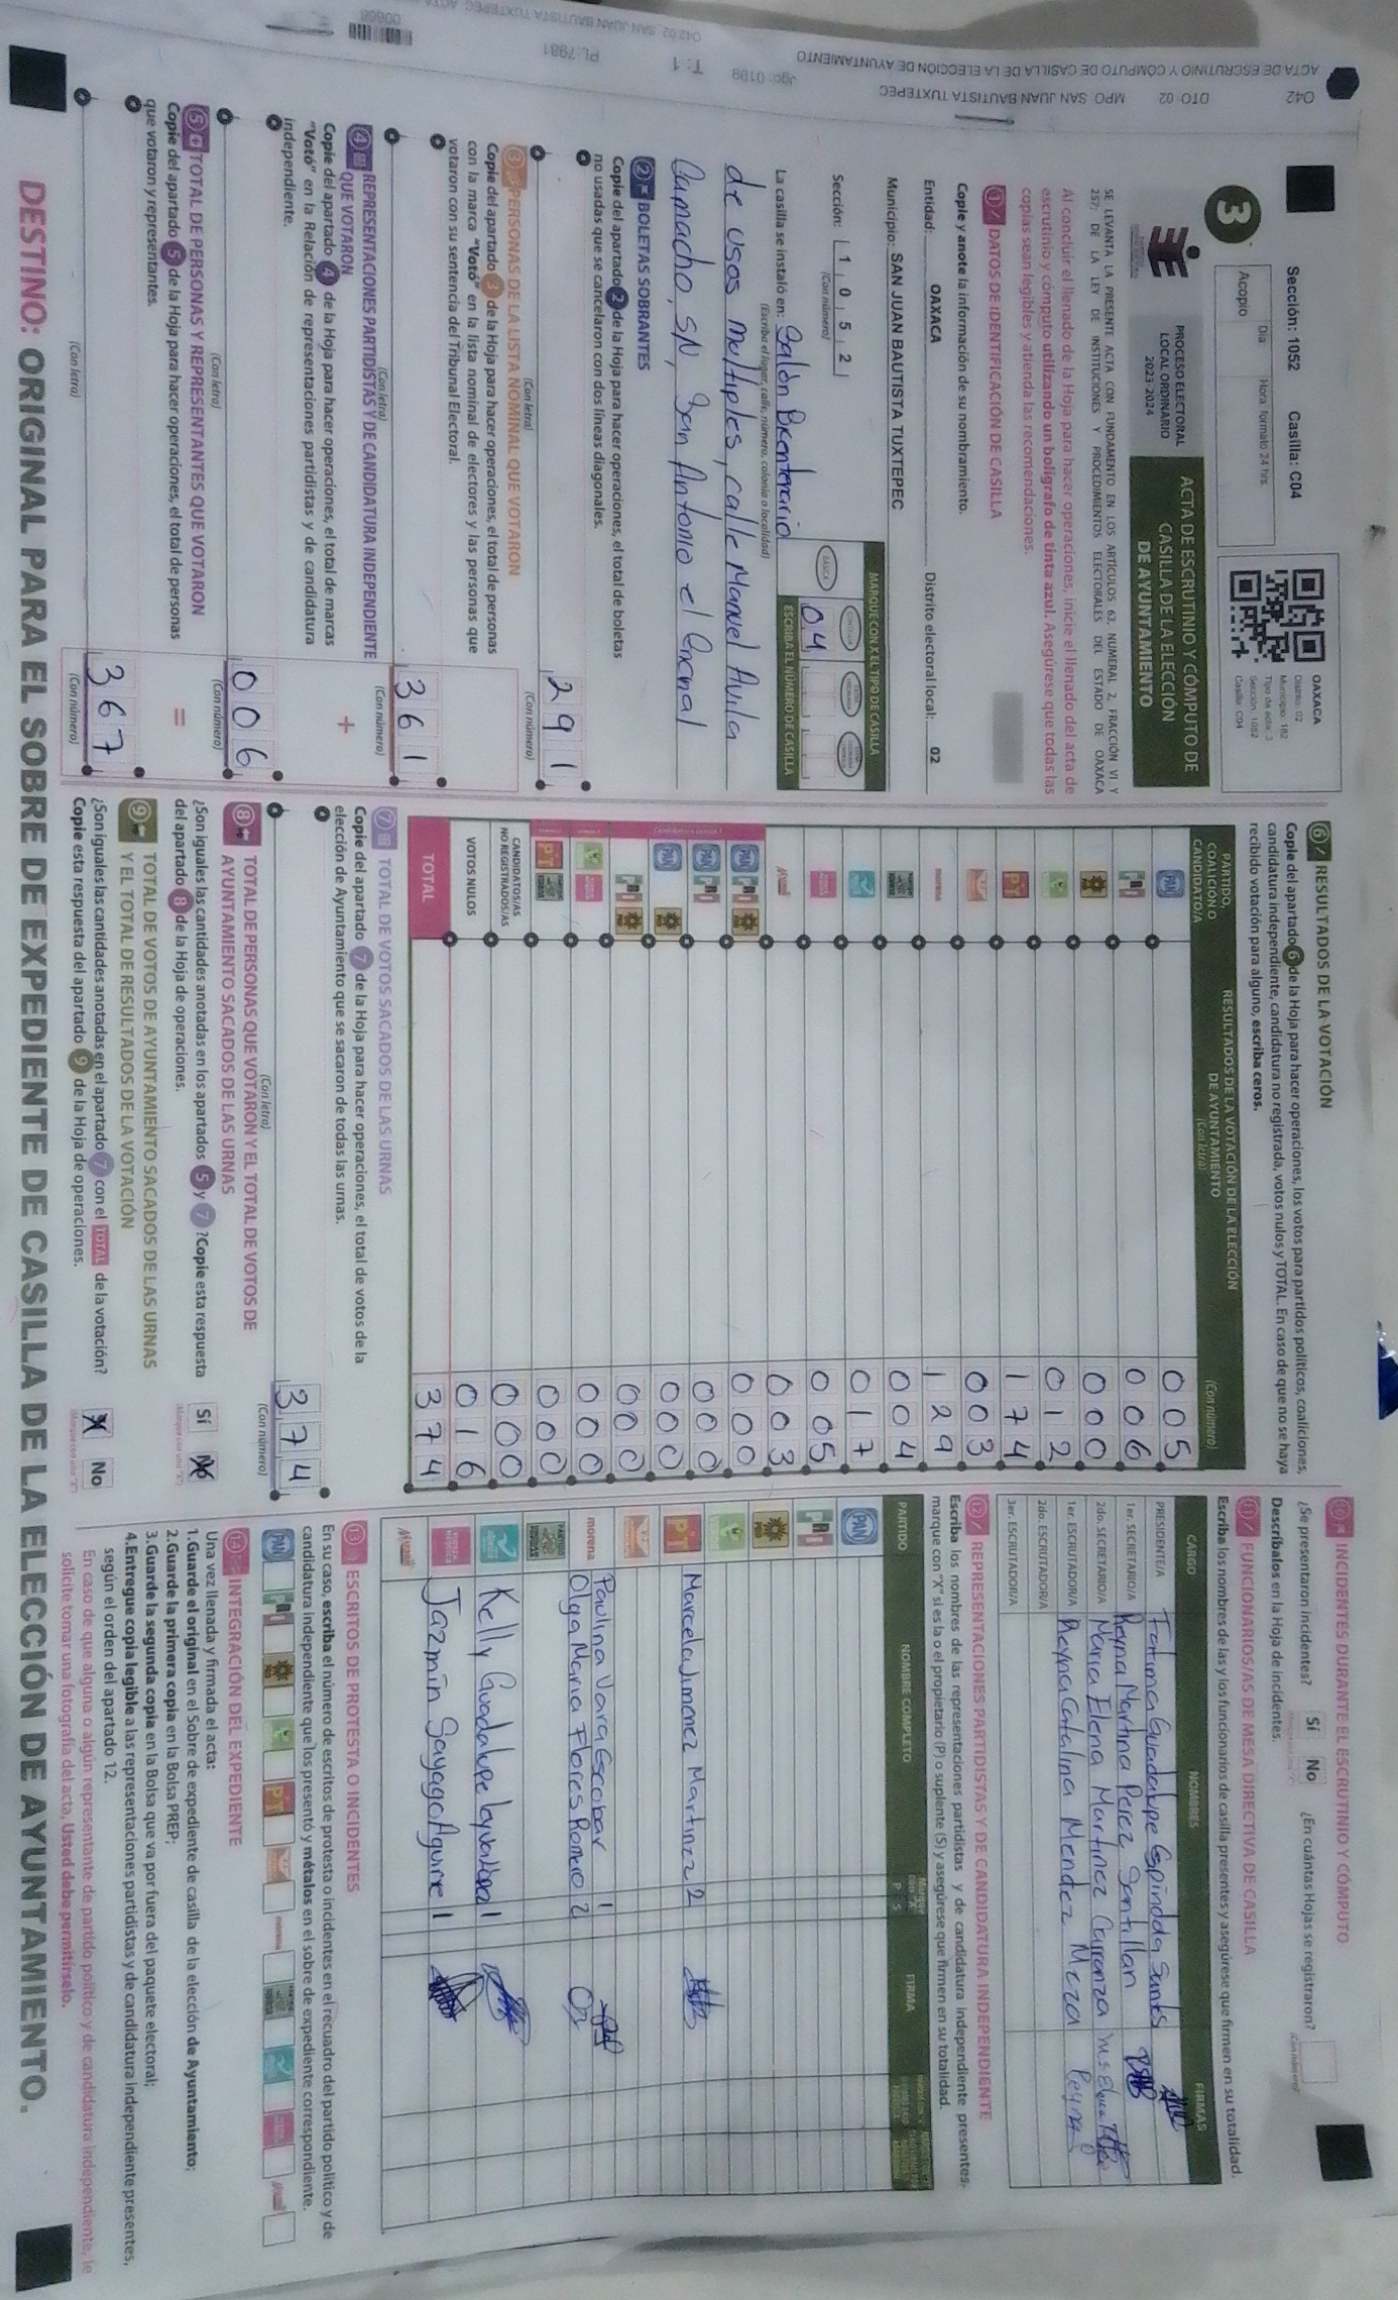 ACTA DE ESCRUTINIO Y CÓMPUTO DE CASILLA DE LA ELECCIÓN DE AYUNTAMIENTO
042 DTO: 02 MPO: SAN JUAN BAUTISTA TUXTEPEC
Sección: 1052 Casilla: C04
Día Hora formato 24 hrs.
Acopio
3
OAXACA
Distrito: 02
Municipio: 182
Tipo de acta: 3
Sección: 1052
Casilla: C04
PROCESO ELECTORAL
LOCAL ORDINARIO
2023-2024
ACTA DE ESCRUTINIO Y CÓMPUTO DE
CASILLA DE LA ELECCIÓN
DE AYUNTAMIENTO
SE LEVANTA LA PRESENTE ACTA CON FUNDAMENTO EN LOS ARTÍCULOS 63, NUMERAL 2, FRACCIÓN VI Y
257; DE LA LEY DE INSTITUCIONES Y PROCEDIMIENTOS ELECTORALES DEL ESTADO DE OAXACA
Al concluir el llenado de la Hoja para hacer operaciones, inicie el llenado del acta de
escrutinio y cómputo utilizando un bolígrafo de tinta azul. Asegúrese que todas las
copias sean legibles y atienda las recomendaciones.
1 DATOS DE IDENTIFICACIÓN DE CASILLA
Copie y anote la información de su nombramiento.
Entidad: OAXACA Distrito electoral local: 02
Municipio: SAN JUAN BAUTISTA TUXTEPEC
Sección: 1 0 5 2
(Con número)
MARQUE CON X EL TIPO DE CASILLA
BÁSICA
04
ESCRIBA EL NÚMERO DE CASILLA
La casilla se instaló en: Salón Brenterario
(Escriba el lugar, calle, número, colonia o localidad)
de usos multiples, calle Manuel Avila
Camacho, SN, San Antonio el Encinal
2 BOLETAS SOBRANTES
Copie del apartado 2 de la Hoja para hacer operaciones, el total de boletas
no usadas que se cancelaron con dos líneas diagonales.
291
(Con letra) (Con número)
3 PERSONAS DE LA LISTA NOMINAL QUE VOTARON
Copie del apartado 3 de la Hoja para hacer operaciones, el total de personas
con la marca "Votó" en la lista nominal de electores y las personas que
votaron con su sentencia del Tribunal Electoral.
361
(Con letra) (Con número)
4 REPRESENTACIONES PARTIDISTAS Y DE CANDIDATURA INDEPENDIENTE
QUE VOTARON
+
Copie del apartado 4 de la Hoja para hacer operaciones, el total de marcas
"Votó" en la Relación de representaciones partidistas y de candidatura
independiente.
006
(Con letra) (Con número)
5 TOTAL DE PERSONAS Y REPRESENTANTES QUE VOTARON
=
Copie del apartado 5 de la Hoja para hacer operaciones, el total de personas
que votaron y representantes.
367
(Con letra) (Con número)
6 RESULTADOS DE LA VOTACIÓN
Copie del apartado 6 de la Hoja para hacer operaciones, los votos para partidos políticos, coaliciones,
candidatura independiente, candidatura no registrada, votos nulos y TOTAL. En caso de que no se haya
recibido votación para alguno, escriba ceros.
PARTIDO, COALICIÓN O CANDIDATO/A
RESULTADOS DE LA VOTACIÓN DE LA ELECCIÓN
DE AYUNTAMIENTO
(Con letra) (Con número)
PAN 005
PRI 006
PRD 000
012
PT 174
003
morena 129
004
017
005
003
PAN PRI PRD 000
PAN PRI 000
PAN PRD 000
PRI PRD 000
000
PT 000
CANDIDATOS/AS
NO REGISTRADOS/AS 000
VOTOS NULOS 016
TOTAL 374
7 TOTAL DE VOTOS SACADOS DE LAS URNAS
Copie del apartado 7 de la Hoja para hacer operaciones, el total de votos de la
elección de Ayuntamiento que se sacaron de todas las urnas.
374
(Con letra) (Con número)
8 TOTAL DE PERSONAS QUE VOTARON Y EL TOTAL DE VOTOS DE
AYUNTAMIENTO SACADOS DE LAS URNAS
¿Son iguales las cantidades anotadas en los apartados 5 y 7 ?Copie esta respuesta
del apartado 8 de la Hoja de operaciones.
Sí No
9 TOTAL DE VOTOS DE AYUNTAMIENTO SACADOS DE LAS URNAS
Y EL TOTAL DE RESULTADOS DE LA VOTACIÓN
¿Son iguales las cantidades anotadas en el apartado 7 con el TOTAL de la votación?
Copie esta respuesta del apartado 9 de la Hoja de operaciones.
No
10 INCIDENTES DURANTE EL ESCRUTINIO Y CÓMPUTO
¿Se presentaron incidentes? Sí No ¿En cuántas Hojas se registraron?
Descríbalos en la Hoja de incidentes.
11 FUNCIONARIOS/AS DE MESA DIRECTIVA DE CASILLA
Escriba los nombres de las y los funcionarios de casilla presentes y asegúrese que firmen en su totalidad.
CARGO NOMBRES FIRMAS
PRESIDENTE/A Fatima Guadalupe Espindola
1er. SECRETARIO/A Reyna Martina Perez Santillan
2do. SECRETARIO/A Maria Elena Martinez Carranza
1er. ESCRUTADOR/A Reyna Catalina Mendez Meza Reyna
2do. ESCRUTADOR/A
3er. ESCRUTADOR/A
12 REPRESENTACIONES PARTIDISTAS Y DE CANDIDATURA INDEPENDIENTE
Escriba los nombres de las representaciones partidistas y de candidatura independiente presentes,
marque con "X" si es la o el propietario (P) o suplente (S) y asegúrese que firmen en su totalidad.
PARTIDO NOMBRE COMPLETO P S FIRMA
PAN
PRI
PRD
PT Marcela Jimenez Martinez 2
morena Paulina Vara Escobar 1
Olga Maria Flores Romero 2
Kelly Guadalupe 1
Jazmín Sayago Aguirre 1
13 ESCRITOS DE PROTESTA O INCIDENTES
En su caso, escriba el número de escritos de protesta o incidentes en el recuadro del partido político y de
candidatura independiente que los presentó y métalos en el sobre de expediente correspondiente.
PAN PRI PRD PT morena
14 INTEGRACIÓN DEL EXPEDIENTE
Una vez llenada y firmada el acta:
1.Guarde el original en el Sobre de expediente de casilla de la elección de Ayuntamiento;
2.Guarde la primera copia en la Bolsa PREP;
3.Guarde la segunda copia en la Bolsa que va por fuera del paquete electoral;
4.Entregue copia legible a las representaciones partidistas y de candidatura independiente presentes,
según el orden del apartado 12.
En caso de que alguna o algún representante de partido político y de candidatura independiente, le
solicite tomar una fotografía del acta, Usted debe permitírselo.
DESTINO: ORIGINAL PARA EL SOBRE DE EXPEDIENTE DE CASILLA DE LA ELECCIÓN DE AYUNTAMIENTO.